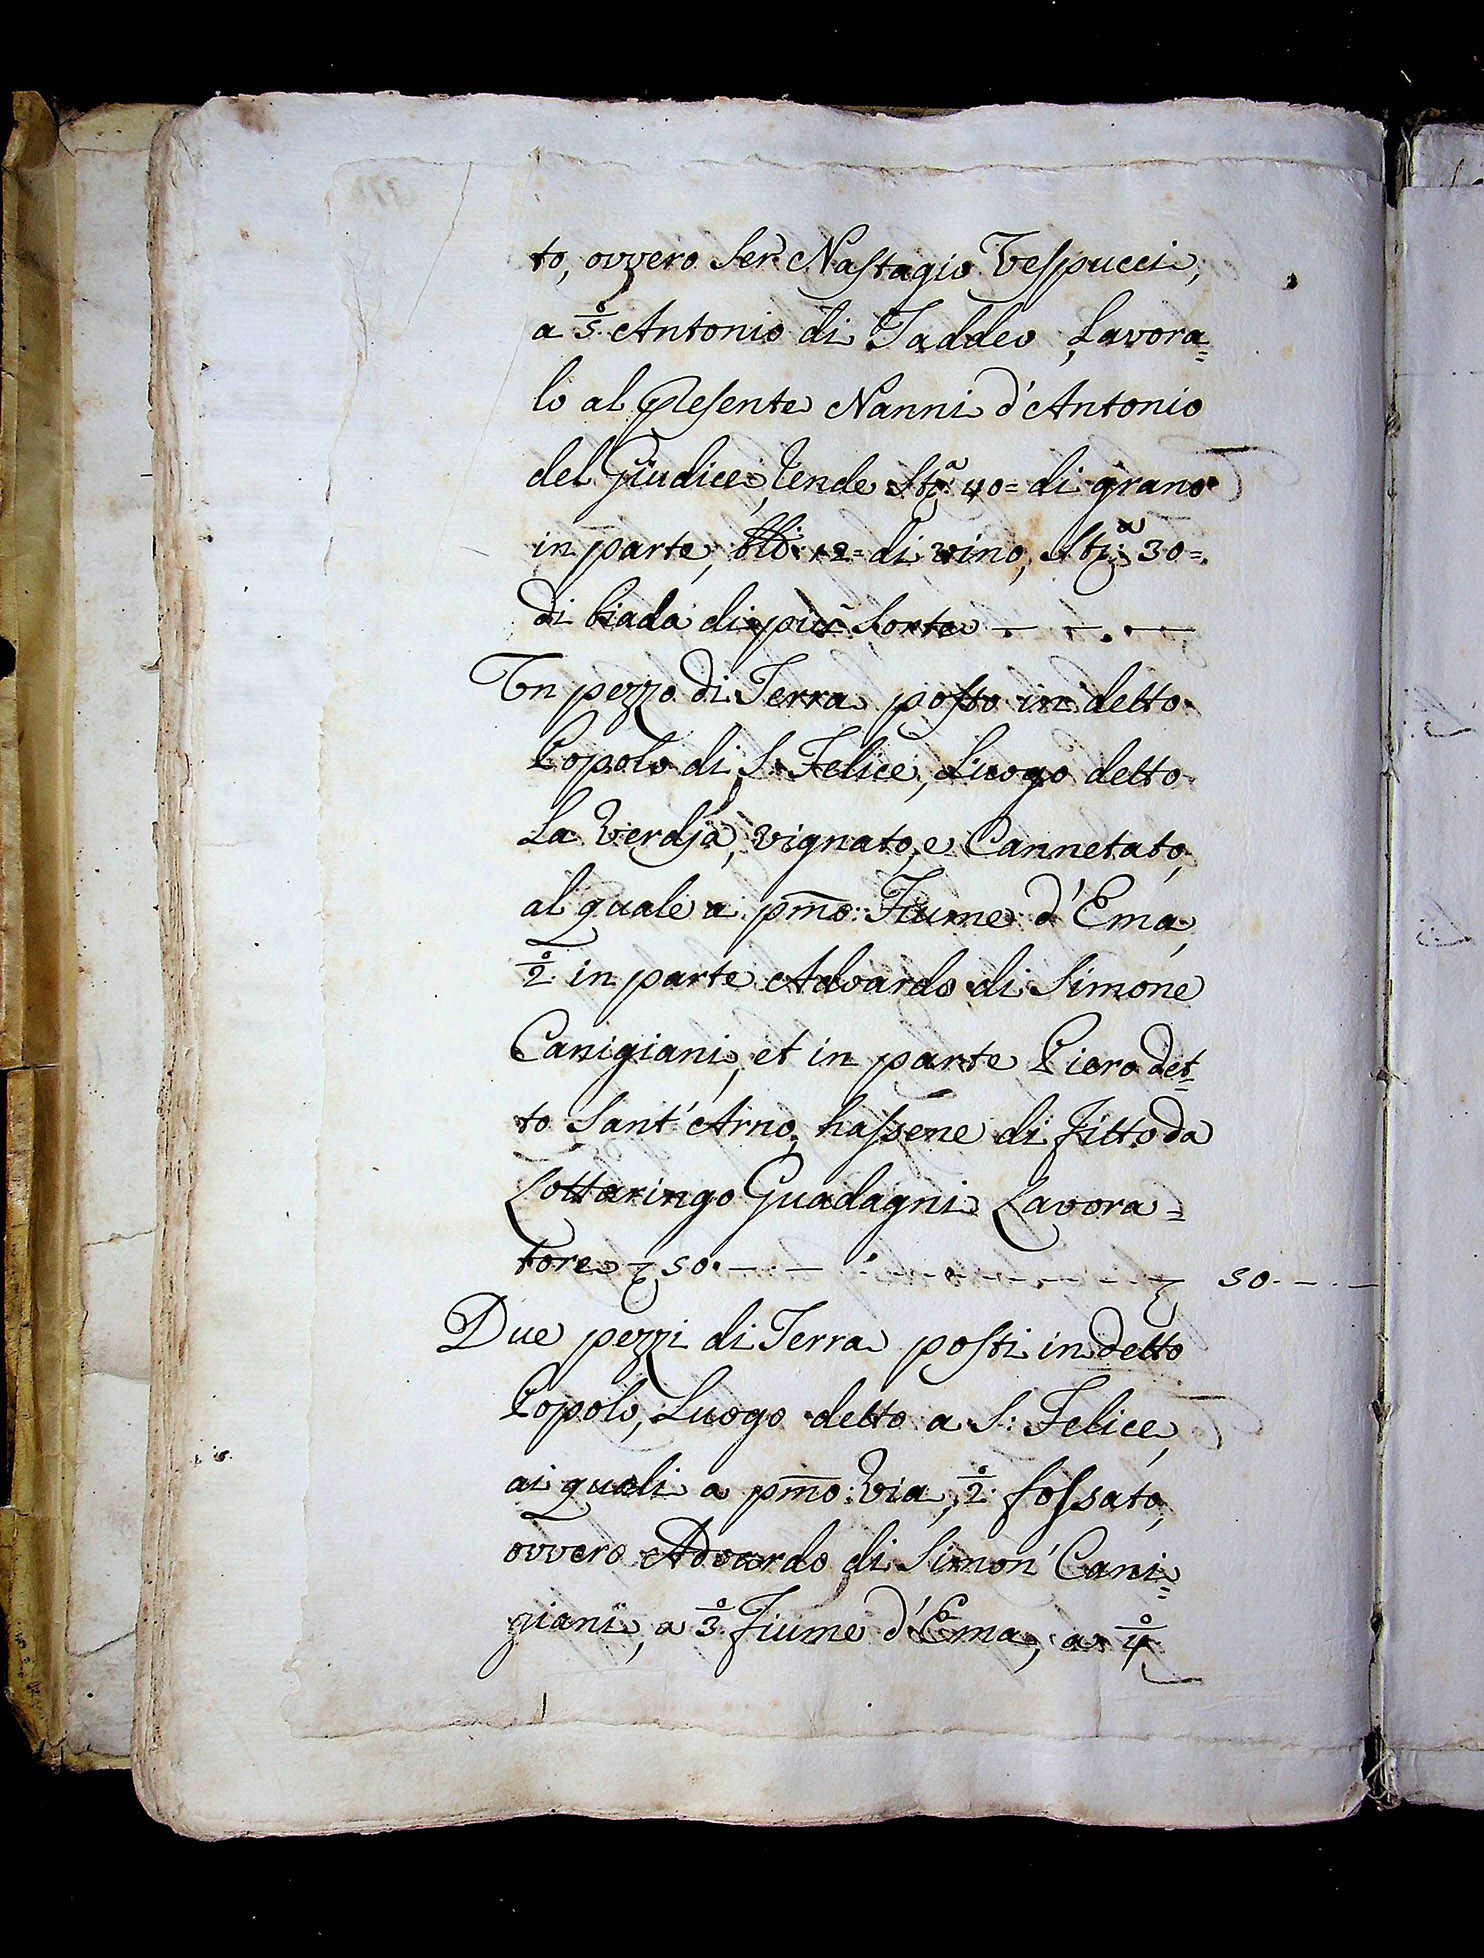 to, ovvero Ser Nastagio Vespucci,
a 5º Antonio di Taddeo, Lavora=
lo al presente Nanni d'Antonio
del Giudice, rende Stª 40= di grano
in parte, bli: 12= di vino, Stª: 30=
di biada di più sorte
Un pezzo di Terra posto in detto
Popolo di S: Felice, Luogo detto
La Verdsa, vignato, e Cannetato,
al quale a pmo: Fiume d'Ema,
2º in parte Adoardo di Simone
Canigiani, et in parte Piero det=
to Sant'Arno, hassene di fitto da
Lottaringo Guadagni Lavora=
tore 50. 50.
Due pezzi di Terra posti in detto
Popolo, Luogo detto a S: Felice,
ai quali a pmo: Via, 2º fossato,
ovvero Adoardo di Simon' Cani=
giani, a 3º Fiume d'Ema, a 4º